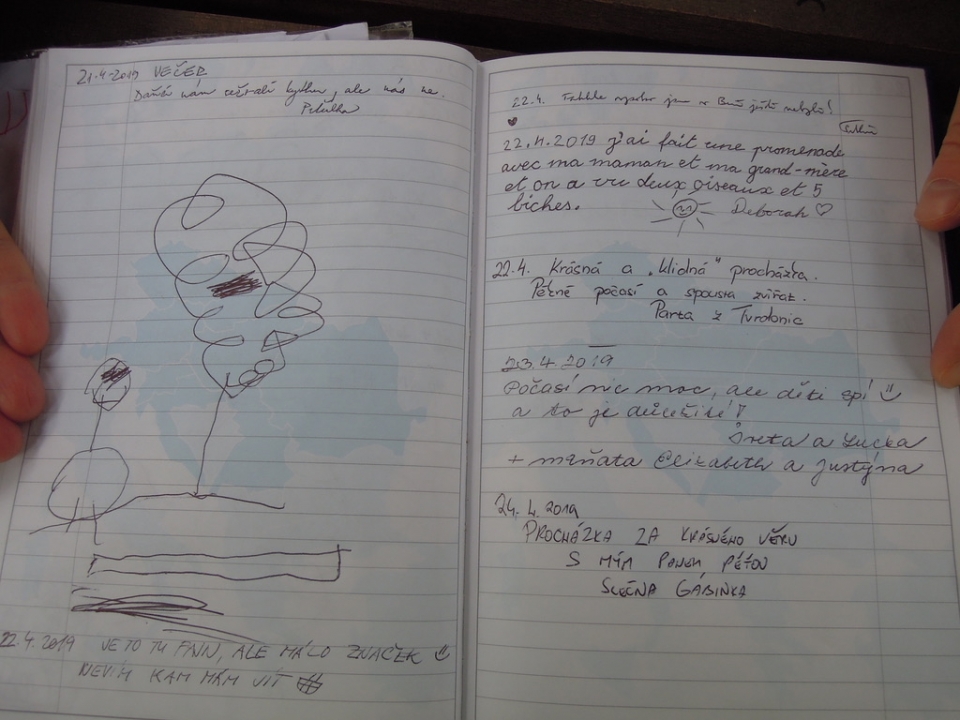 21.4.2019 VEČER
nám kytku, ale nás ne.
22.4.2019 JE TO TU FAJN, ALE MÁLO ZNAČEK
NEVÍM KAM MÁM JÍT
22.4.
22.4.2019 j'ai fait une promenade
avec ma maman et ma grand-mère
et on a vu deux oiseaux et 5
biches.
Deborah ♡
22.4. Krásná a „klidná" procházka.
Pěkné počasí a spousta zvířat.
Parta z Tvrdonic
23.4.2019
Počasí nic moc, ale děti spí
a to je důležité!
a Lucka
+ mrňata Elizabeth a Justýna
24.4.2019
PROCHÁZKA ZA KRÁSNÉHO VĚRU
S MÝM PANEM PÉŤOU
SLEČNA GÁBINKA